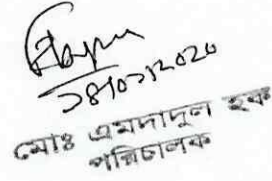 ১৪/০১/২০২০
মোঃ এমদাদুল হক
পরিচালক